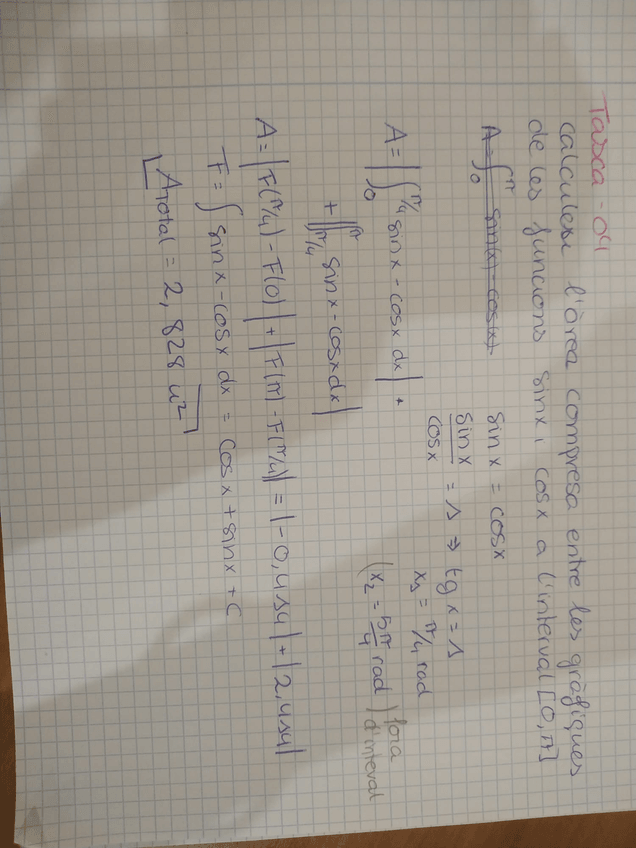 Tasca - 04
Calculeu l'àrea compresa entre les gràfiques
de les funcions sinx, cosx a l'interval [0, π]
A = ∫₀^π sin(x) - cos(x)
sin x = cos x
sin x / cos x = 1 ⇒ tg x = 1
x₁ = π/4 rad
(x₂ = 5π/4 rad) fora d'interval
A = |∫₀^π/4 sin x - cosx dx| +
+ |∫π/4^π sin x - cosx dx|
A = |F(π/4) - F(0)| + |F(π) - F(π/4)| = |-0,414| + |2,414|
F = ∫ sin x - cosx dx = cosx + sinx + C
A total = 2,828 u²